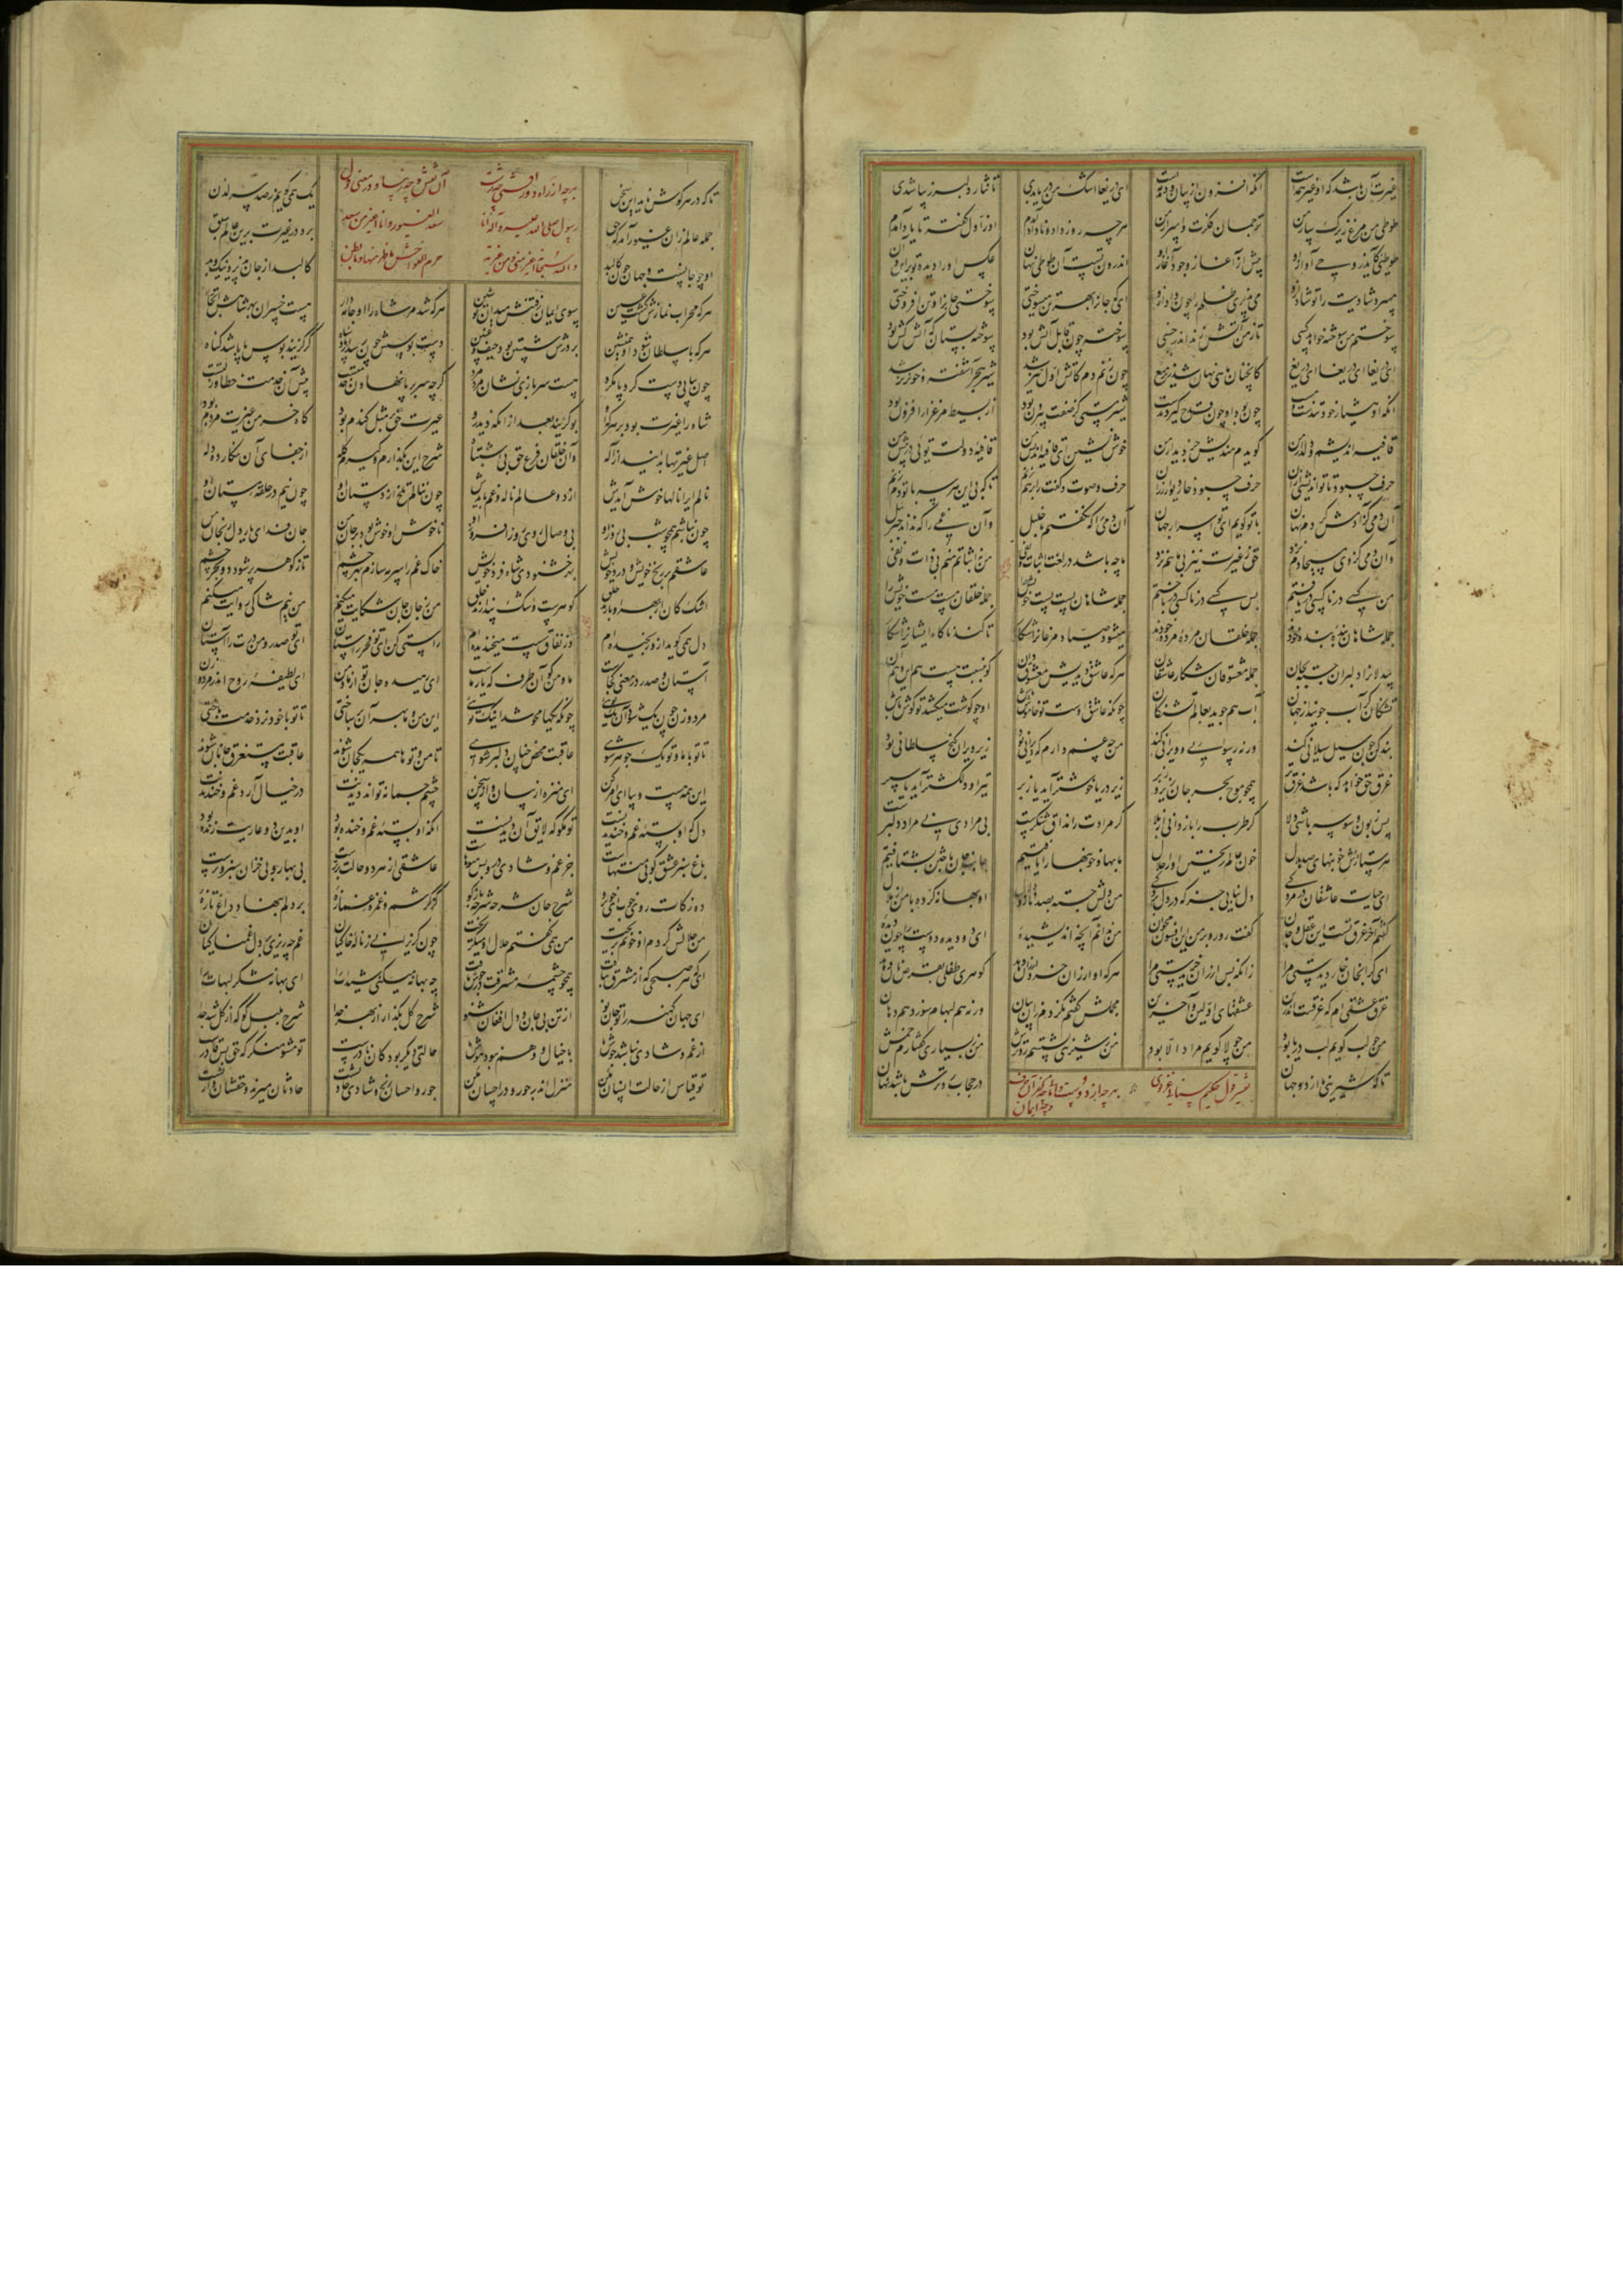 غیرت آن باشد که او غیر همه است انکه افزون از بیان و دمدمه است ای دریغا اشک من دریا بدی تا نثار دلبر زیبا شدی
طوطی من مرغ زیرکسار من ترجمان فکرت و اسرار من هرچه روزی داد و ناداد آیدم او ز اول گفته تا یاد آیدم
طوطیی کاید ز وحی آواز او پیش از آغاز وجود آغاز او اندرون تست آن طوطی نهان عکس او را دیده تو بر این و آن
میبرد شادیت را تو شاد ازو می پذیری ظلم را چون داد ازو ای که جانرا بهر تن میسوختی سوختی جانرا و تن افروختی
سوختم من سوخته خواهد کسی تا ز من آتش زند اندر خسی سوخته چون قابل آتش بود سوخته بستان که آتش کش بود
ای دریغا ای دریغا ای دریغ کانچنان ماهی نهان شد زیر میغ چون زنم دم کاتش دل تیز شد شیر هجر آشفته و خونریز شد
انکه او هشیار خود تندست و مست چون بود او چون قدح گیرد بدست شیر مستی کز صفت بیرون بود از بسیط مرغزار افزون بود
قافیه اندیشم و دلدار من گویدم مندیش جز دیدار من خوش نشین ای قافیه اندیش من قافیه دولت توئی در پیش من
حرف چبود تا تو اندیشی از آن حرف چبود خار دیوار رزان حرف و صوت و گفت را برهم زنم تا که بی این هر سه با تو دم زنم
آن دمی کز آدمش کردم نهان با تو گویم ای تو اسرار جهان آن دمی را که نگفتم با خلیل و آن غمی را که نداند جبرئیل
وان دمی کز وی مسیحا دم نزد حق ز غیرت نیز بی ما هم نزد ما چه باشد در لغت اثبات و نفی من نه اثباتم منم بی ذات و نفی
من کسی در ناکسی دریافتم پس کسی در ناکسی درباختم جمله شاهان پست پست خویش را جمله خلقان مست مست خویش را
جمله شاهان بنده بنده خودند جمله خلقان مرده مرده خودند میشود صیاد مرغانرا شکار تا کند ناگاه ایشانرا شکار
بیدلانرا دلبران جسته بجان جمله معشوقان شکار عاشقان هرکه عاشق دیدیش معشوق دان کو بنسبت هست هم این و هم آن
تشنگان گر آب جویند از جهان آب هم جوید بعالم تشنگان چونکه عاشق اوست تو خاموش باش او چو گوشت میکشد تو گوش باش
بند کن چون سیل سیلانی کند ورنه رسوائی و ویرانی کند من چه غم دارم که ویرانی بود زیر ویران گنج سلطانی بود
غرق حق خواهد که باشد غرق تر همچو موج بحر جان زیر و زبر زیر دریا خوشتر آید یا زبر تیر او دلکشتر آید یا سپر
پس زبون وسوسه باشی دلا گر طرب را باز دانی از بلا گر مرادت را مذاق شکرست بی مرادی نی مراد دلبرست
هر ستارش خونبهای صد هلال خون عالم ریختن او را حلال ما بها و خونبها را یافتیم جانب جان باختن بشتافتیم
ای حیات عاشقان در مردگی دل نیابی جز که در دل بردگی من دلش جسته بصد ناز و دلال او بهانه کرده با من از ملال
گفتم آخر غرق تست این عقل و جان گفت رو رو بر من این افسون مخوان من ندانم آنچه اندیشیده ای دو دیده دوست را چون دیده
ای گرانجان خوار دیدستی مرا زانکه بس ارزان خریدستی مرا هرکه او ارزان خرد ارزان دهد گوهری طفلی بقرصی نان دهد
غرق عشقی ام که غرقست اندرین عشقهای اولین و آخرین مجملش گفتم نکردم زان بیان ورنه هم لبها بسوزد هم دهان
من چو لب گویم لب دریا بود من چو لا گویم مراد الا بود من ز شیرینی نشستم رو ترش من ز بسیاری گفتارم خمش
تا که شیرینی ما از دو جهان در حجاب رو ترش باشد نهان
تفسیر قول حکیم سنایی غزنوی بهرچه از دوست وامانی چه کفر آن حرف
و چه ایمان
تا که در هر گوش ناید این سخن یک همی گویم ز صد سر لدن
بهرچه از راه دور افتی چه زشت آن نقش و چه زیبا و در معنی قول
رسول صلی الله علیه و آله ان سعد الغیور و انا اغیر من سعد
و الله اغیر منی و من غیرته حرم الفواحش ما ظهر منها و ما بطن
جمله عالم زان غیور آمد که حق برد در غیرت برین عالم سبق
او چو جانست و جهان چون کالبد کالبد از جان پذیرد نیک و بد
هرکه محراب نمازش گشت عین سوی ایمان رفتنش میدان تو شین هرکه شد مر شاه را او جامه دار هست خسران بهر شاهش اتجار
هرکه با سلطان شود او همنشین بر درش شستن بود حیف و غبین دست بوسش چون رسید از پادشاه گر گزیند بوس پا باشد گناه
گرچه سر بر پا نهادن خدمتست پیش آن خدمت خطا و زلتست
شاه را غیرت بود بر هرکه او بو گزیند بعد از انکه دید رو غیرت حق بر مثل گندم بود کاه خرمن غیرت مردم بود
اصل غیرتها بدانید از اله وآن خلقان فرع حق بی اشتباه شرح این بگذارم و گیرم گله از جفای آن نگار ده دله
نالم ایرا نالها خوش آیدش از دو عالم ناله و غم بایدش چون ننالم تلخ از دستان او چون نیم در حلقه مستان او
چون نباشم همچو شب بی روز او بی وصال روی روز افروز او ناخوش او خوش بود در جان من جان فدای یار دل رنجان من
عاشقم بر رنج خویش و درد خویش بهر خشنودی شاه فرد خویش خاک غم را سرمه سازم بهر چشم تا ز گوهر پر شود دو بحر چشم
اشک کان از بهر او بارند خلق گوهرست و اشک پندارند خلق من ز جان جان شکایت میکنم من نیم شاکی روایت میکنم
دل همی گوید ازو رنجیده ام وز نفاق سست میخندیده ام راستی کن ای تو فخر راستان ای تو صدر و من درت را آستان
آستان و صدر در معنی کجاست ما و من کو آن طرف که یار ماست ای رهیده جان تو از ما و من ای لطیفه روح اندر مرد و زن
مرد و زن چون یک شود آن یک توئی چونکه یکها محو شد آنک توئی این من و ما بهر آن برساختی تا تو با خود نرد خدمت باختی
عاقبت محض چنان دلبر شوی تا من و توها همه یکجان شوند عاقبت مستغرق جانان شوند
این همه هست و بیا ای امر کن ای منزه از بیان و از سخن چشم جسمانه تواند دیدنت در خیال آرد غم و خندیدنت
دل که او بسته غم و خندیدنست تو مگو که لایق آن دیدنست انکه او بسته غم و خنده بود او بدین دو عاریت زنده بود
باغ سبز عشق کو بی منتهاست جز غم و شادی درو بس میوهاست عاشقی از هر دو حالت برترست بی بهار و بی خزان سبز و ترست
ده زکات روی خوب ای خوبرو شرح جان شرحه شرحه بازگو کز کرشم و غمزه غمازه بر دلم بنهاد داغ تازه
من حلالش کردم ار خونم بریخت من همی گفتم حلال او میگریخت چون گریزانی ز ناله خاکیان غم چه ریزی بر دل غمناکیان
ای که هر صبحی که از مشرق بتافت همچو چشمه مشرقت در جوش یافت چه بهانه میکنی شیدات را ای بهانه شکر لبهات را
ای جهان کهنه را تو جان نو از تن بی جان و دل افغان شنو شرح گل بگذار از بهر خدا شرح بلبل گو که از گل شد جدا
از غم و شادی نباشد جوش ما با خیال و وهم نبود هوش ما حالتی دیگر بود کان نادرست تو مشو منکر که حق بس قادرست
تو قیاس از حالت انسان مکن منزل اندر جور و در احسان مکن جور و احسان رنج و شادی حادثست حادثان میرند و حقشان وارثست